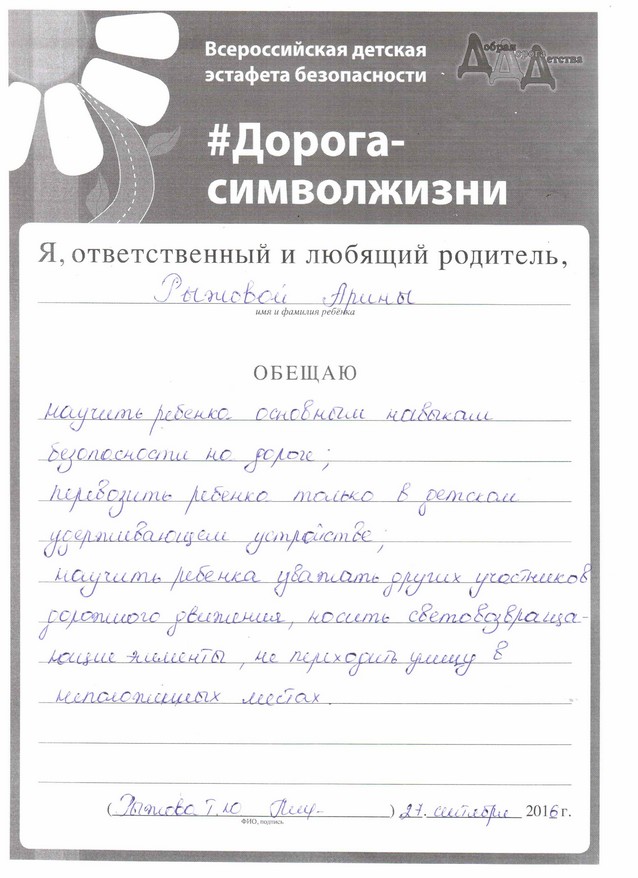 Всероссийская детская
эстафета безопасности
Добрая Дорога Детства
#Дорога-
символжизни
Я, ответственный и любящий родитель,
Рыжовой Арины
имя и фамилия ребёнка
ОБЕЩАЮ
научить ребенка основным навыкам
безопасности на дороге;
перевозить ребенка только в детском
удерживающем устройстве;
научить ребенка уважать других участников
дорожного движения, носить световозвраща-
ющие элементы, не переходить улицу в
неположенных местах.
(Рыжова Т.Ю ) 27. сентября 2016 г.
ФИО, подпись